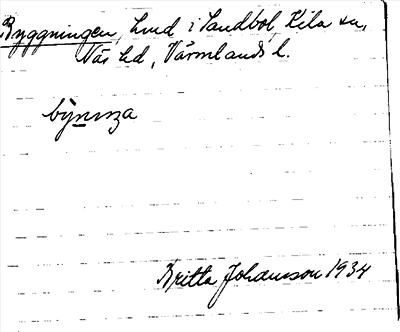 Byggningen, Lund i Sandbol, Kila sn,
Näs hd, Värmlands l.
Britta Johansson 1934